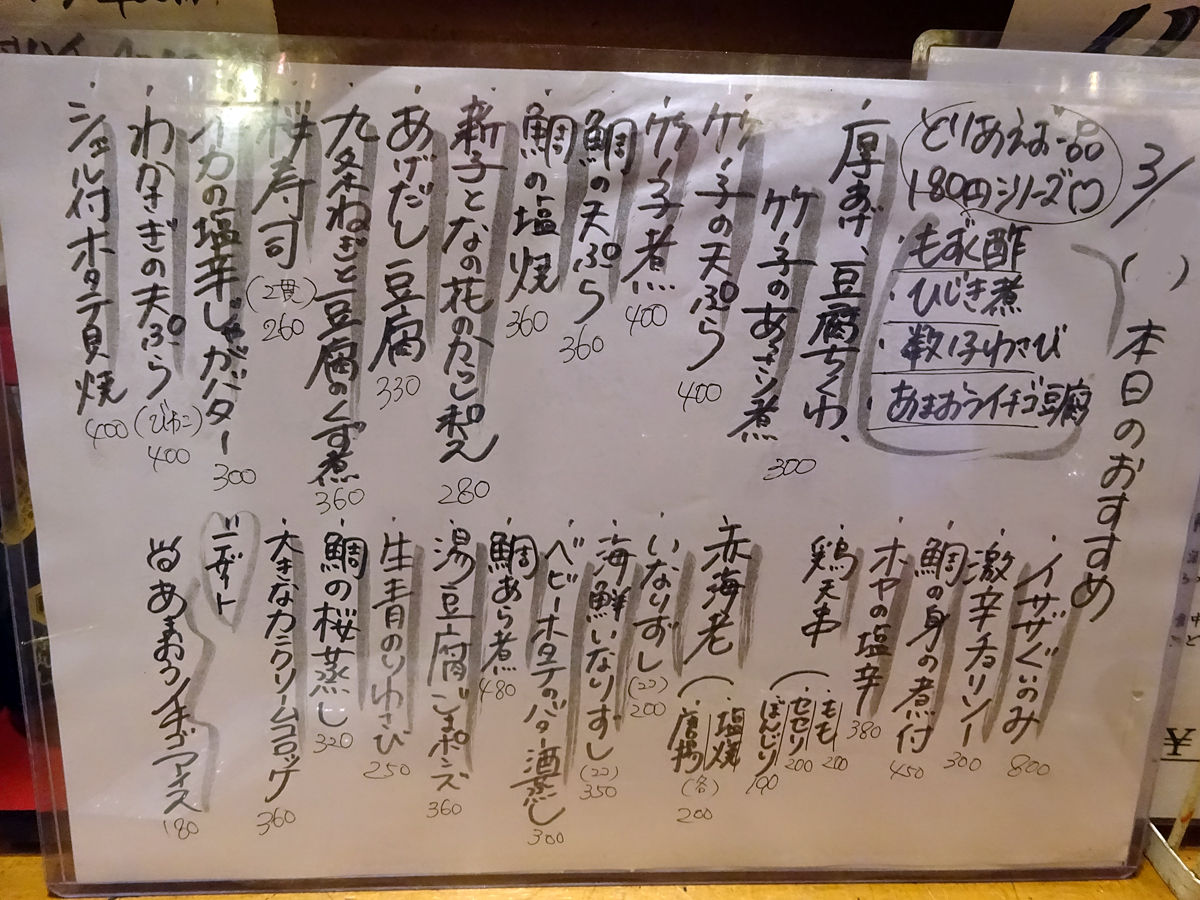 3/ ( ) 本日のおすすめ
とりあえず一品
180円シリーズ
・もずく酢
・ひじき煮
・数の子わさび
・あまおうイチゴ豆腐
・厚あげ、豆腐ちくわ、
竹ノ子のあっさり煮
300
・竹ノ子の天ぷら
400
・竹ノ子煮
400
・鯛の天ぷら
360
・鯛の塩焼
360
・新子となの花のからし和え
280
・あげだし豆腐
330
・九条ねぎと豆腐のくず煮
360
・桜寿司
(2貫)
260
・イカの塩辛じゃがバター
300
・わかさぎの天ぷら
(びわこ)
400
・シェル付ホタテ貝焼
400
・イザぐいのみ
800
・激辛チョリソー
300
・鯛の身の煮付
450
・ホヤの塩辛
380
・鶏天串
もも
200
セセリ
200
ぼんじり
190
・赤海老
塩焼
唐揚
(各)
200
・いなりずし
(2コ)
200
・海鮮いなりずし
(2コ)
350
・ベビーホタテのバター酒蒸し
300
・鯛あら煮
480
・湯豆腐ごまポンズ
360
・生青のりわさび
250
・鯛の桜蒸し
320
・大きなカニクリームコロッケ
360
デザート
あまおうイチゴアイス
180
¥